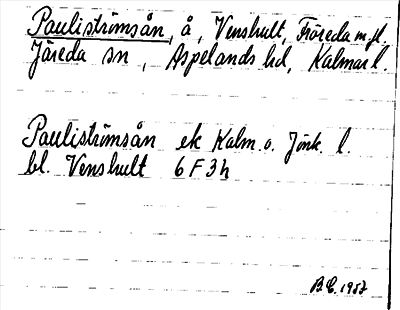 Pauliströmsån, å, Venshult, Fröreda m.fl.
Järeda sn, Aspelands hd, Kalmar l.
Pauliströmsån ek Kalm. o. Jönk. l.
bl. Venshult 6 F 3 h